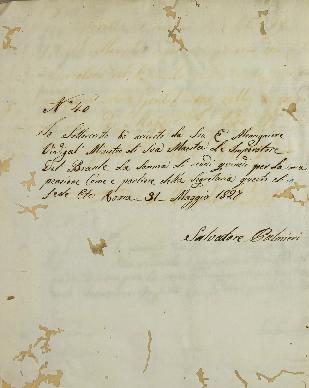 N.° 40
Io Sottoscritto ho ricevuto da Sua E. Monsignore
Vidigal Ministro di Sua Maestà L'Imperatore
Del Brasile La Somma di scudi quindici per La mia
pensione Come portiere della Segreteria questo dì
fede Etc. Roma 31 Maggio 1827
Salvatore Palmieri